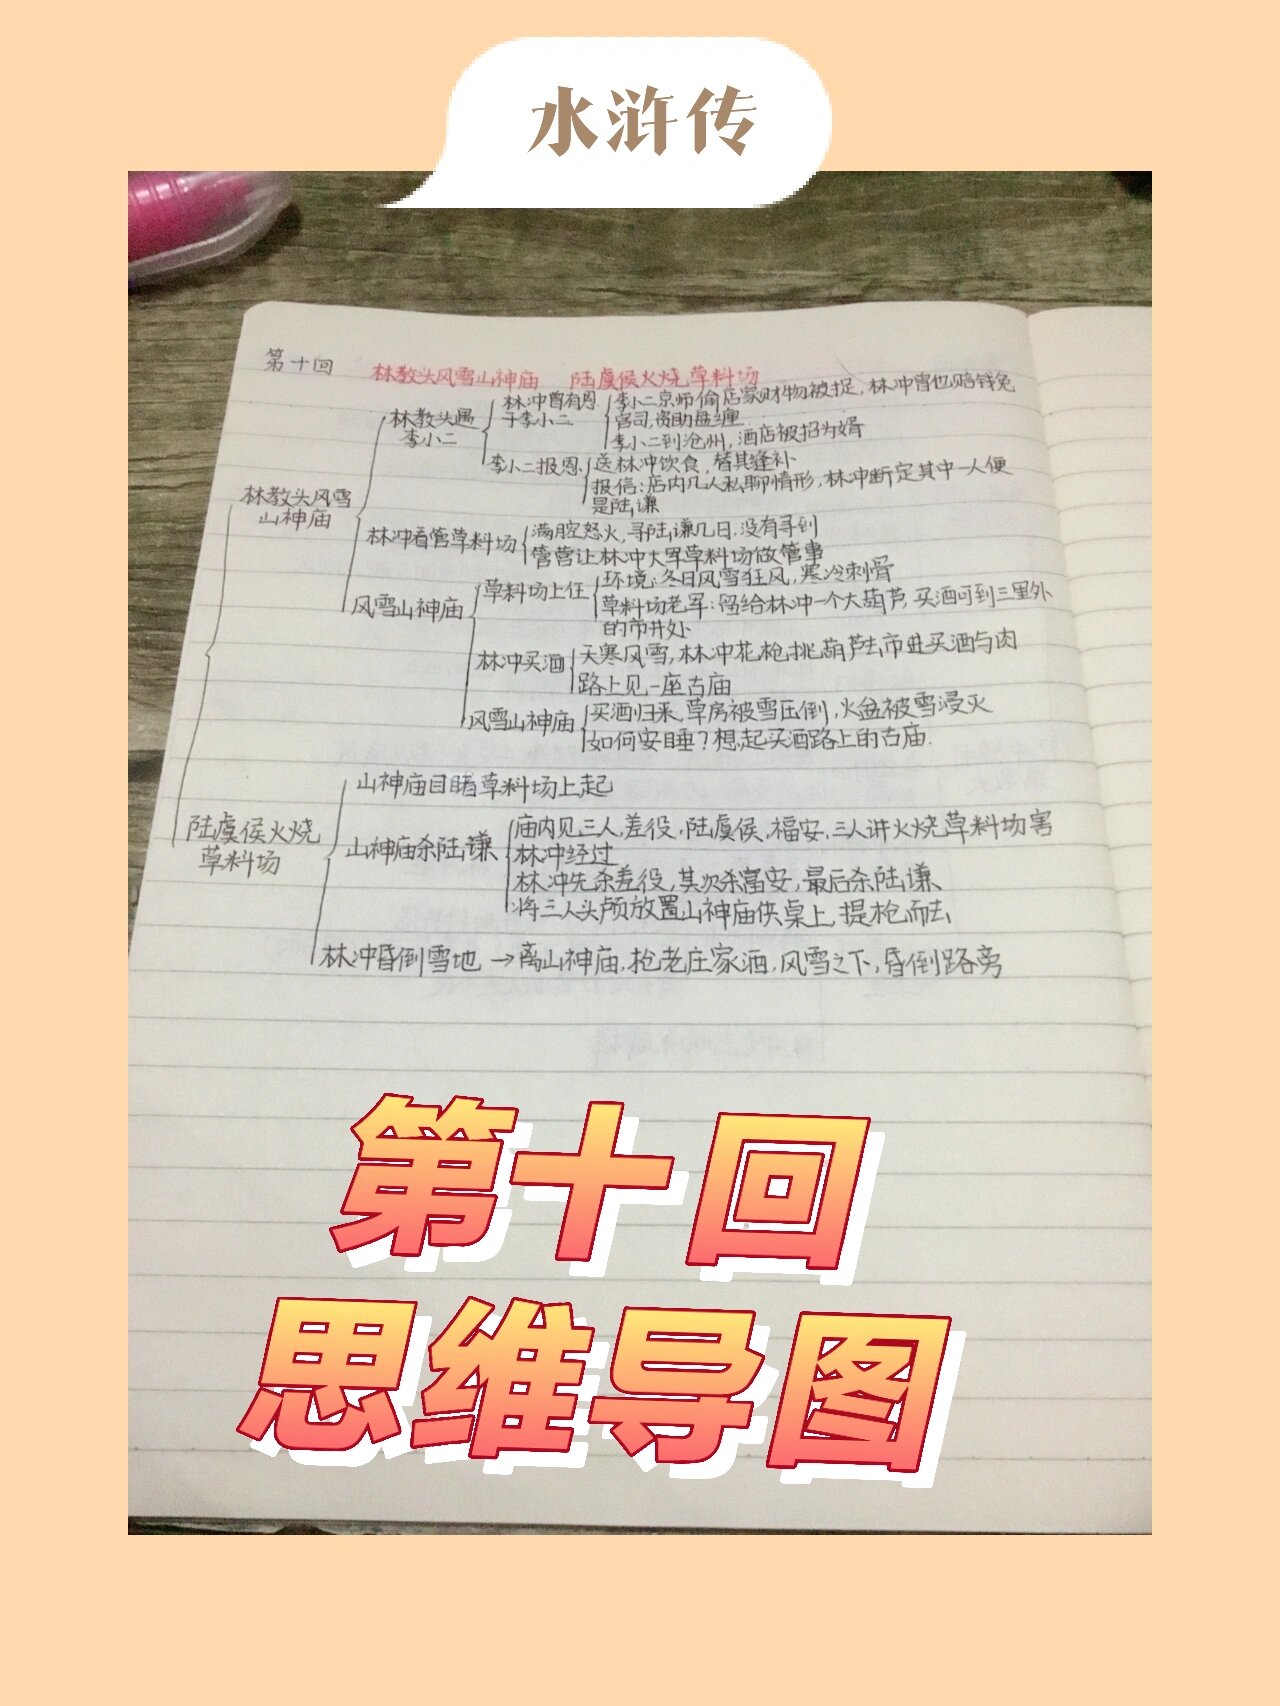 水浒传
第十回 林教头风雪山神庙 陆虞侯火烧草料场
林教头风雪
山神庙
林教头遇
李小二
林冲曾有恩
于李小二
李小二京师偷店家财物被捉，林冲曾也赔钱免
官司，资助盘缠
李小二到沧州，酒店被招为婿
李小二报恩
送林冲饮食，替其缝补
报信：店内几人私聊情形，林冲断定其中一人便
是陆谦
林冲看管草料场
满腔怒火，寻陆谦几日，没有寻到
管营让林冲大军草料场做管事
风雪山神庙
草料场上任
环境：冬日风雪狂风，寒冷刺骨
草料场老军：留给林冲一个大葫芦，买酒可到三里外
的市井处
林冲买酒
天寒风雪，林冲花枪挑葫芦去市井买酒与肉
路上见一座古庙
风雪山神庙
买酒归来，草房被雪压倒，火盆被雪浸灭
如何安睡？想起买酒路上的古庙.
陆虞侯火烧
草料场
山神庙目睹草料场上起
山神庙杀陆谦
庙内见三人，差役，陆虞侯，福安，三人讲火烧草料场害
林冲经过
林冲先杀差役，其次杀富安，最后杀陆谦
将三人头颅放置山神庙供桌上，提枪而去
林冲昏倒雪地 →离山神庙，抢老庄家酒，风雪之下，昏倒路旁
第十回
思维导图